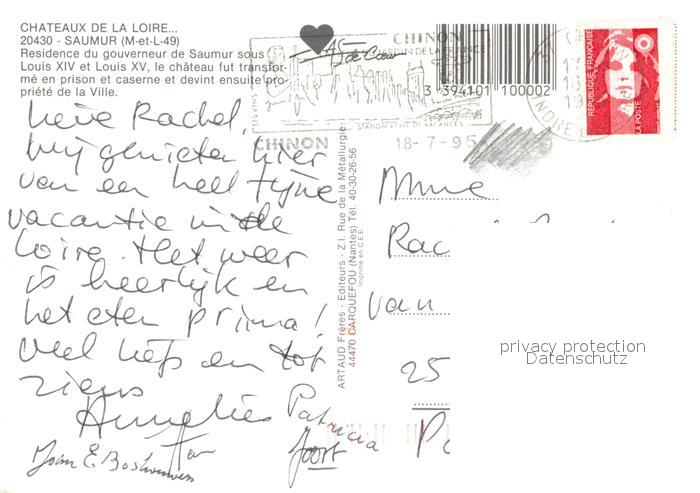 CHATEAUX DE LA LOIRE...
20430 - SAUMUR (M-et-L-49)
Residence du gouverneur de Saumur sous
Louis XIV et Louis XV, le château fut transfor-
mé en prison et caserne et devint ensuite pro-
priété de la Ville.
Lieve Rachel,
wij genieten hier
van een heel fijne
vacantie in de
Loire. Het weer
is heerlijk en
het eten prima!
Veel liefs en tot
ziens
Annelies
Patricia
Joort
ARTAUD Frères - Editeurs - Z.I. Rue de la Métallurgie
44470 CARQUEFOU (Nantes) Tél. 40-30-26-56
Imprimé en C.E.E.
CHINON
JARDIN DE LA FRANCE
AS de Cœur
STATION VERTE DE VACANCES
CHINON
18-7-95
3 394101 100002
REPUBLIQUE FRANÇAISE
LA POSTE
Mme
Rac
van
25
privacy protection
Datenschutz